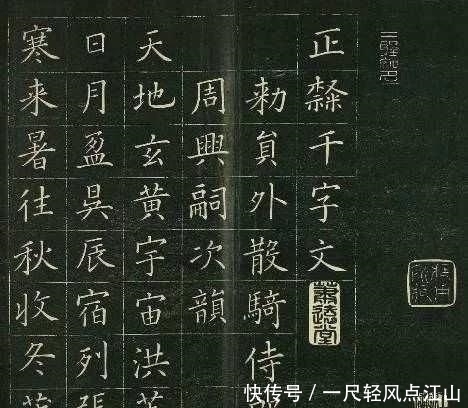 正隸千字文
勅員外散騎侍
周興嗣次韻
天地玄黃宇宙洪
日月盈昃辰宿列張
寒来暑往秋收冬
快传号 / 一尺轻风点江山